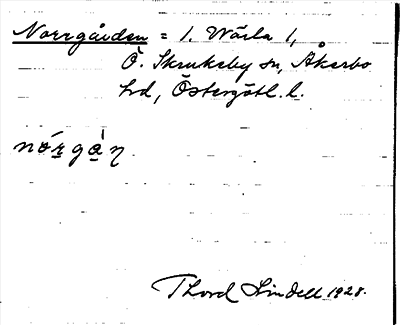 Norrgården = 1. Wärla 1,
Ö. Skrukeby sn, Åkerbo
hd, Östergötl. l.
nórgàn
Thord Lindell 1928.